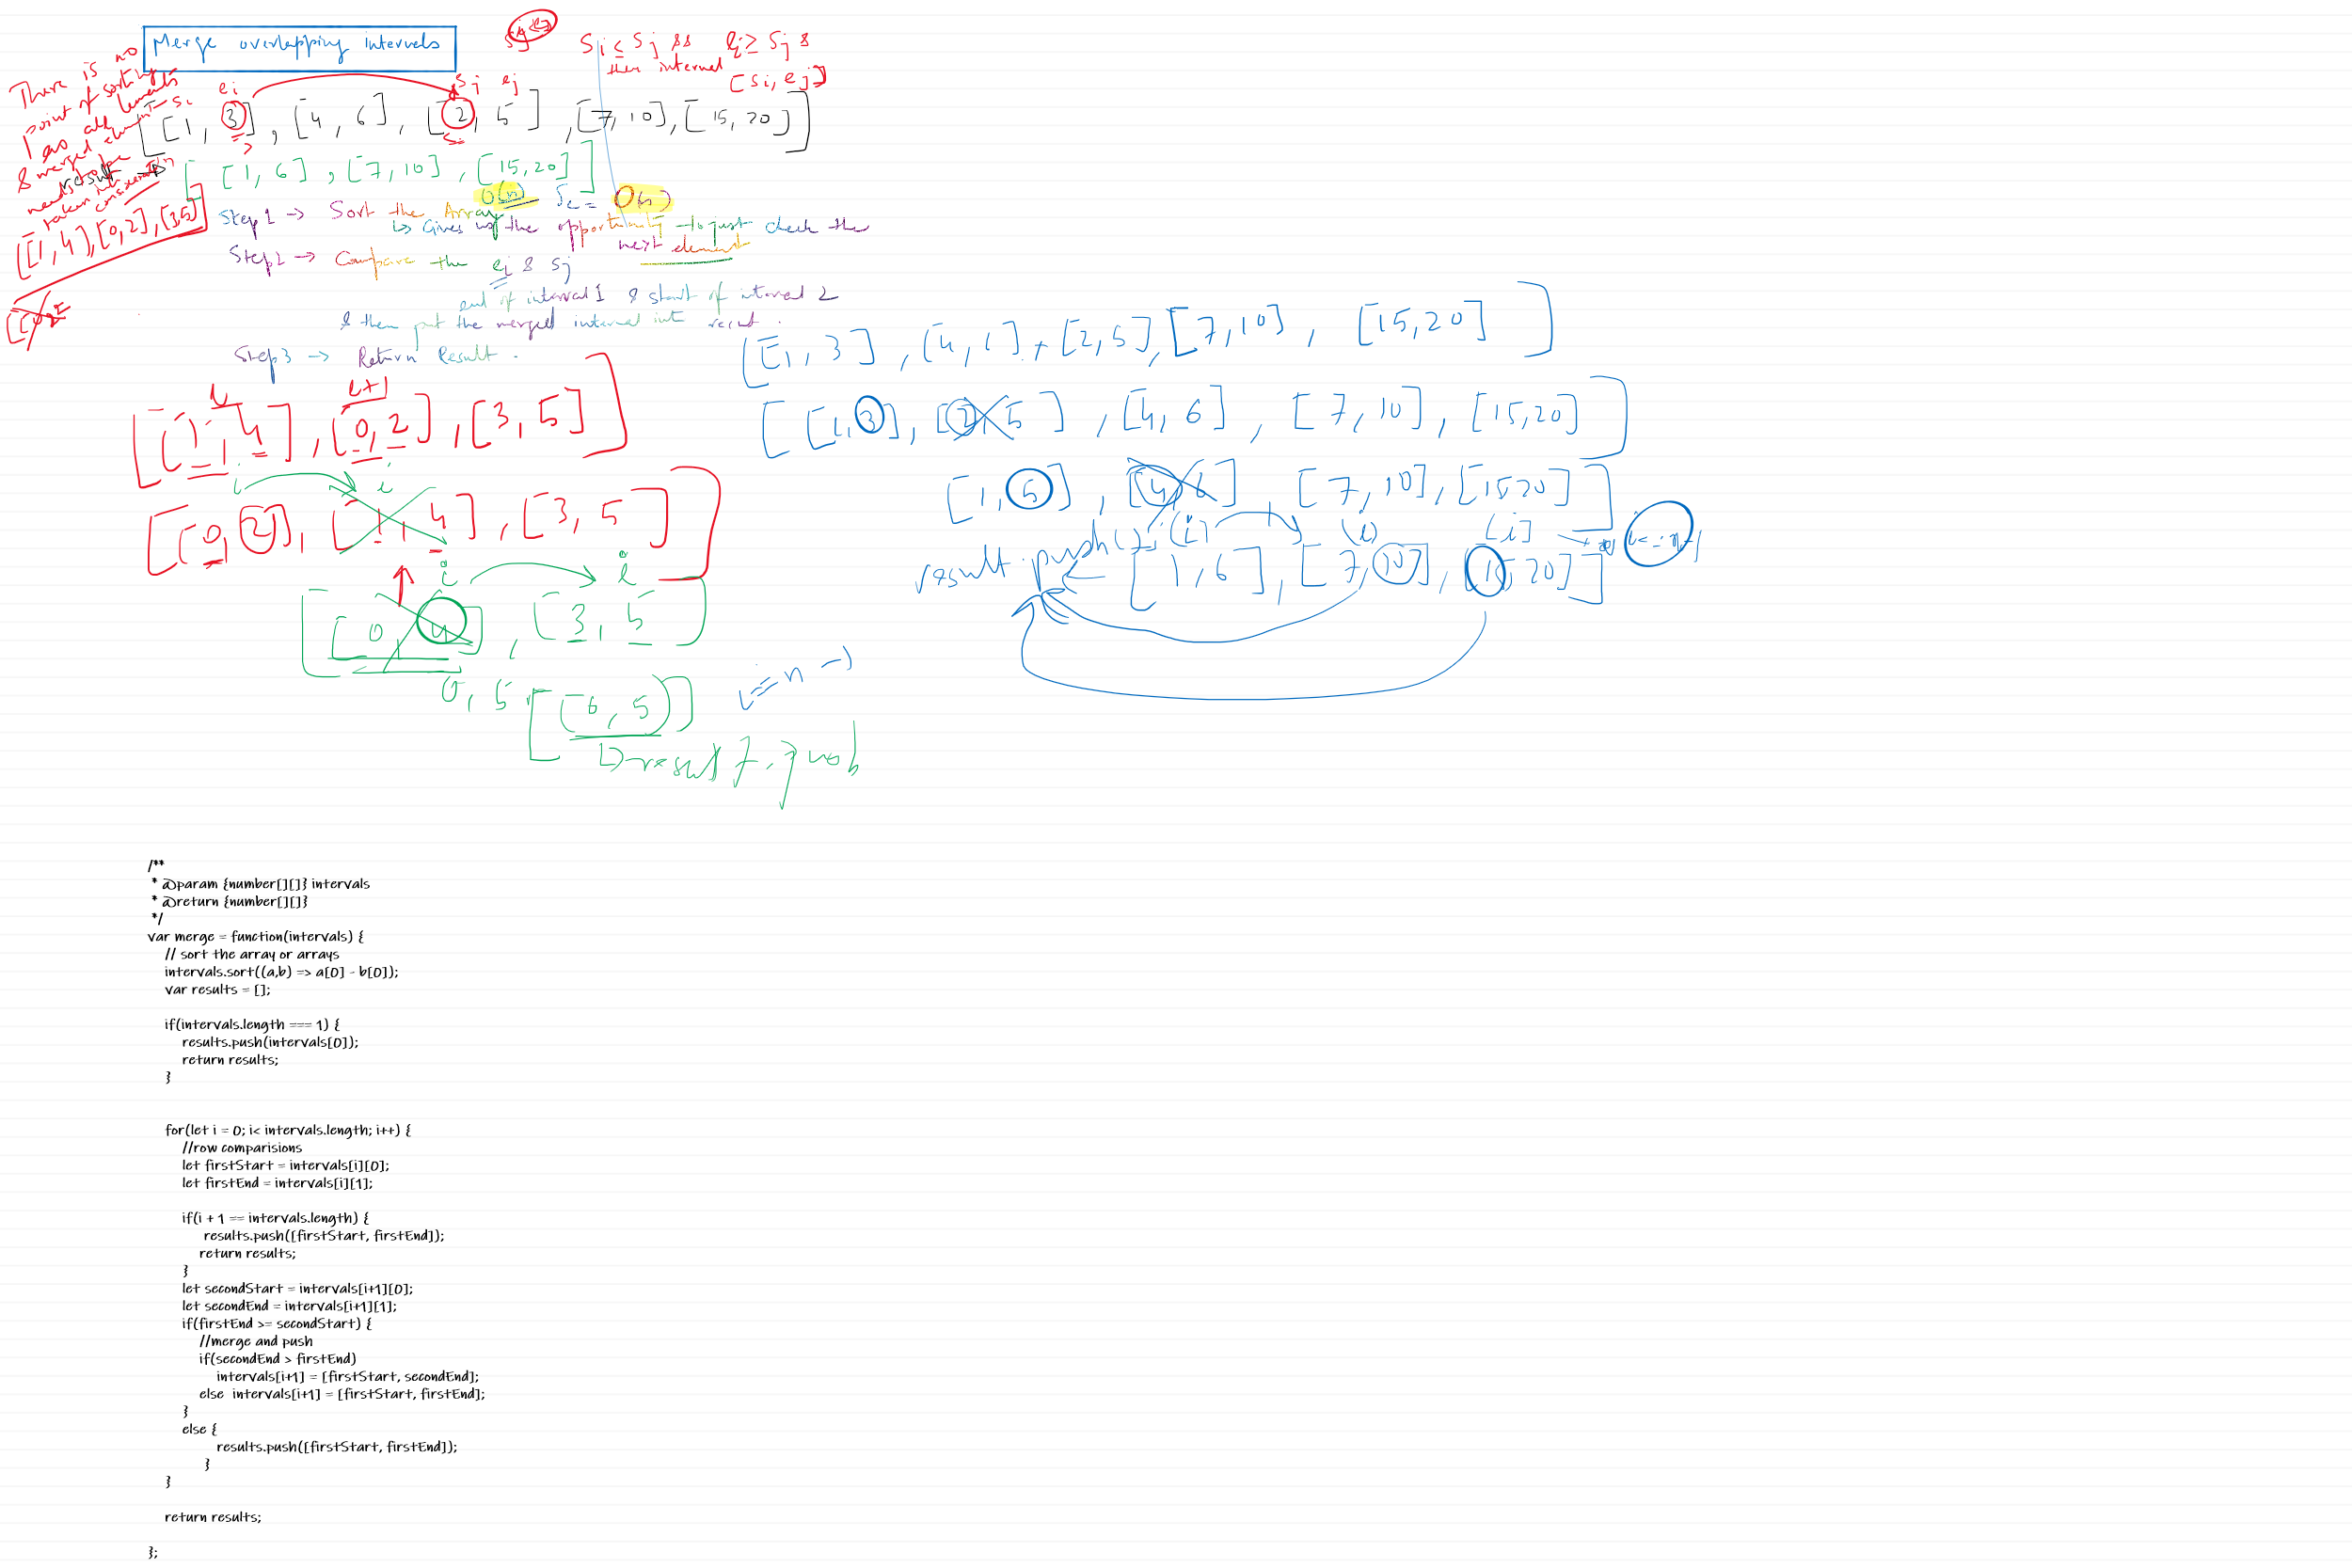 Merge overlapping intervals
Si ≤ Sj && ei ≥ Sj &
then interval
[Si, ej]
There is no
point of sorting
as all elements
& merged
needs to be
taken into
ei
Sj ej
[[1, 3], [4, 6], [2, 5], [7, 10], [15, 20]]
result → [[1, 6], [7, 10], [15, 20]]
O(n) Sc = O(n)
Step 1 → Sort the Array
↳ Gives us the opportunity to just check the
next element
([1, 4], [0, 2], [3, 5]
Step 2 → Compare the ei & Sj
end of interval 1 & start of interval 2
& then put the merged interval into result.
Step 3 → Return Result.
[[1, 3], [4, 6], [2, 5], [7, 10], [15, 20]]
i i+1
[[1, 4], [0, 2], [3, 5]]
[[1, 3], [2, 5], [4, 6], [7, 10], [15, 20]]
i i
[[0, 2], [1, 4], [3, 5]]
[1, 5], [4, 6], [7, 10], [15 20]]
(i) (i) (i)
result.push()
[1, 6], [7, 10], [15, 20]]
i i
[[0, 4], [3, 5]]
0, 5
[[0, 5]]
i == n - 1
↳ result.push
/**
 * @param {number[][]} intervals
 * @return {number[][]}
 */
var merge = function(intervals) {
// sort the array or arrays
intervals.sort((a,b) => a[0] - b[0]);
var results = [];
if(intervals.length === 1) {
results.push(intervals[0]);
return results;
}
for(let i = 0; i< intervals.length; i++) {
//row comparisions
let firstStart = intervals[i][0];
let firstEnd = intervals[i][1];
if(i + 1 == intervals.length) {
results.push([firstStart, firstEnd]);
return results;
}
let secondStart = intervals[i+1][0];
let secondEnd = intervals[i+1][1];
if(firstEnd >= secondStart) {
//merge and push
if(secondEnd > firstEnd)
intervals[i+1] = [firstStart, secondEnd];
else  intervals[i+1] = [firstStart, firstEnd];
}
else {
results.push([firstStart, firstEnd]);
}
}
return results;
};